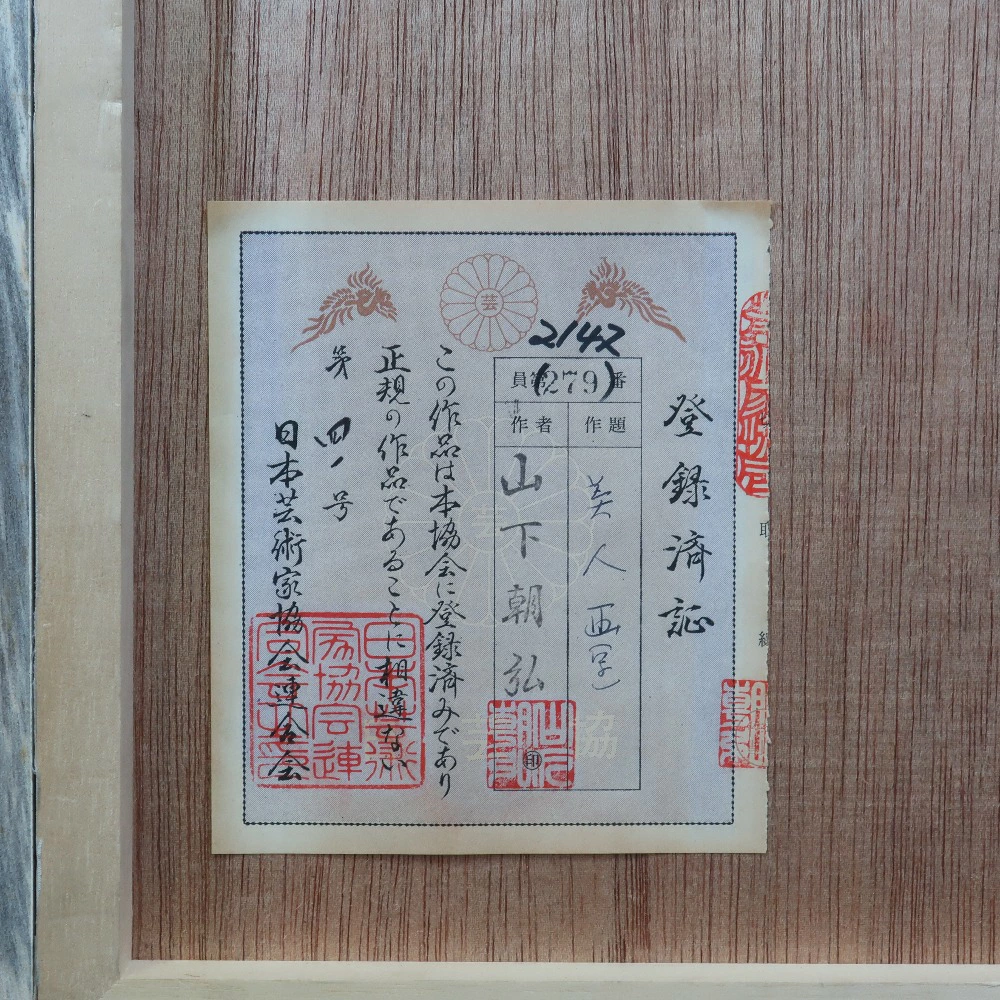 登録済証
2142
員第(279)番
作題
美人画
作者
山下朝弘
印
この作品は本協会に登録済みであり
正規の作品であることに相違ない
第 四 号
日本芸術家協会連合会
芸
芸協